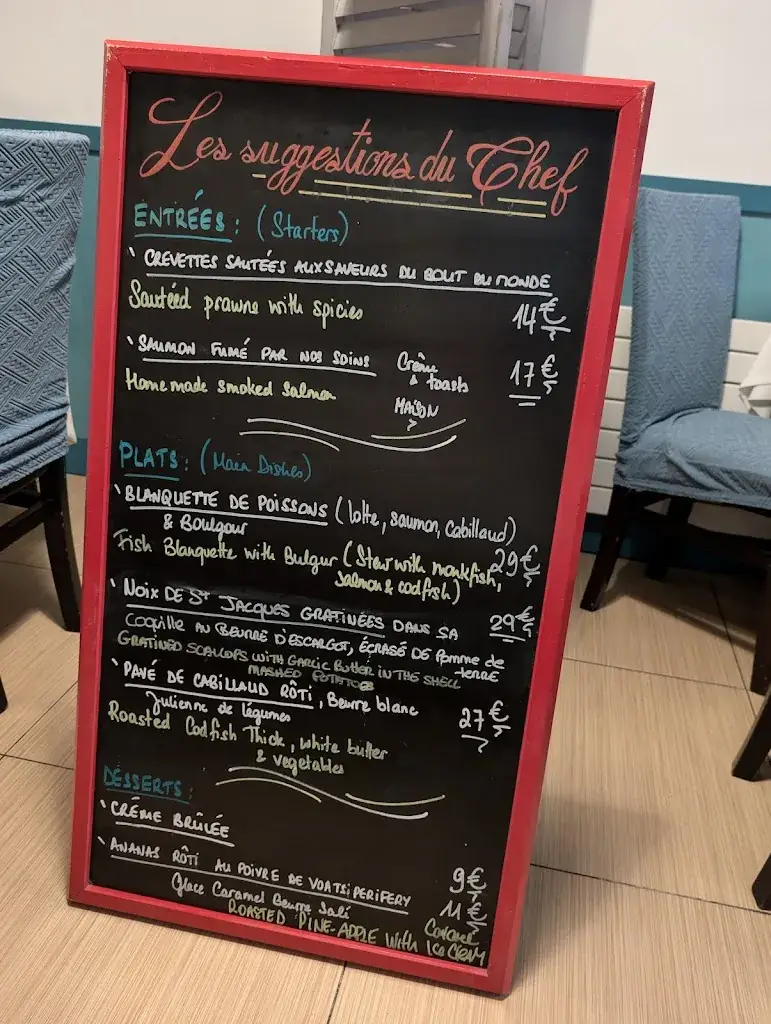 Les suggestions du Chef
ENTRÉES : (Starters)
CREVETTES SAUTÉES AUX SAVEURS DU BOUT DU MONDE
Sautéed prawns with spicies 14€
SAUMON FUMÉ PAR NOS SOINS Crème & toasts MAISON 17€
Home made smoked Salmon
PLATS : (Main Dishes)
BLANQUETTE DE POISSONS (lotte, saumon, cabillaud)
& Boulgour
Fish Blanquette with Bulgur (Stew with monkfish, 29€
Salmon & codfish)
NOIX DE St JACQUES GRATINÉES DANS SA 29€
COQUILLE AU BEURRE D'ESCARGOT, ÉCRASÉ DE Pomme de terre
GRATINED SCALLOPS WITH GARLIC BUTTER IN THE SHELL
MASHED POTATOES
PAVÉ DE CABILLAUD RÔTI, Beurre blanc
Julienne de légumes 27€
Roasted Codfish Thick, white butter
& vegetables
DESSERTS :
CRÉME BRÛLÉE 9€
ANANAS RÔTI AU POIVRE DE VOATSIPERIFERY 11€
Glace Caramel Beurre Salé
ROASTED PINE-APPLE WITH Caramel Ice CREAM